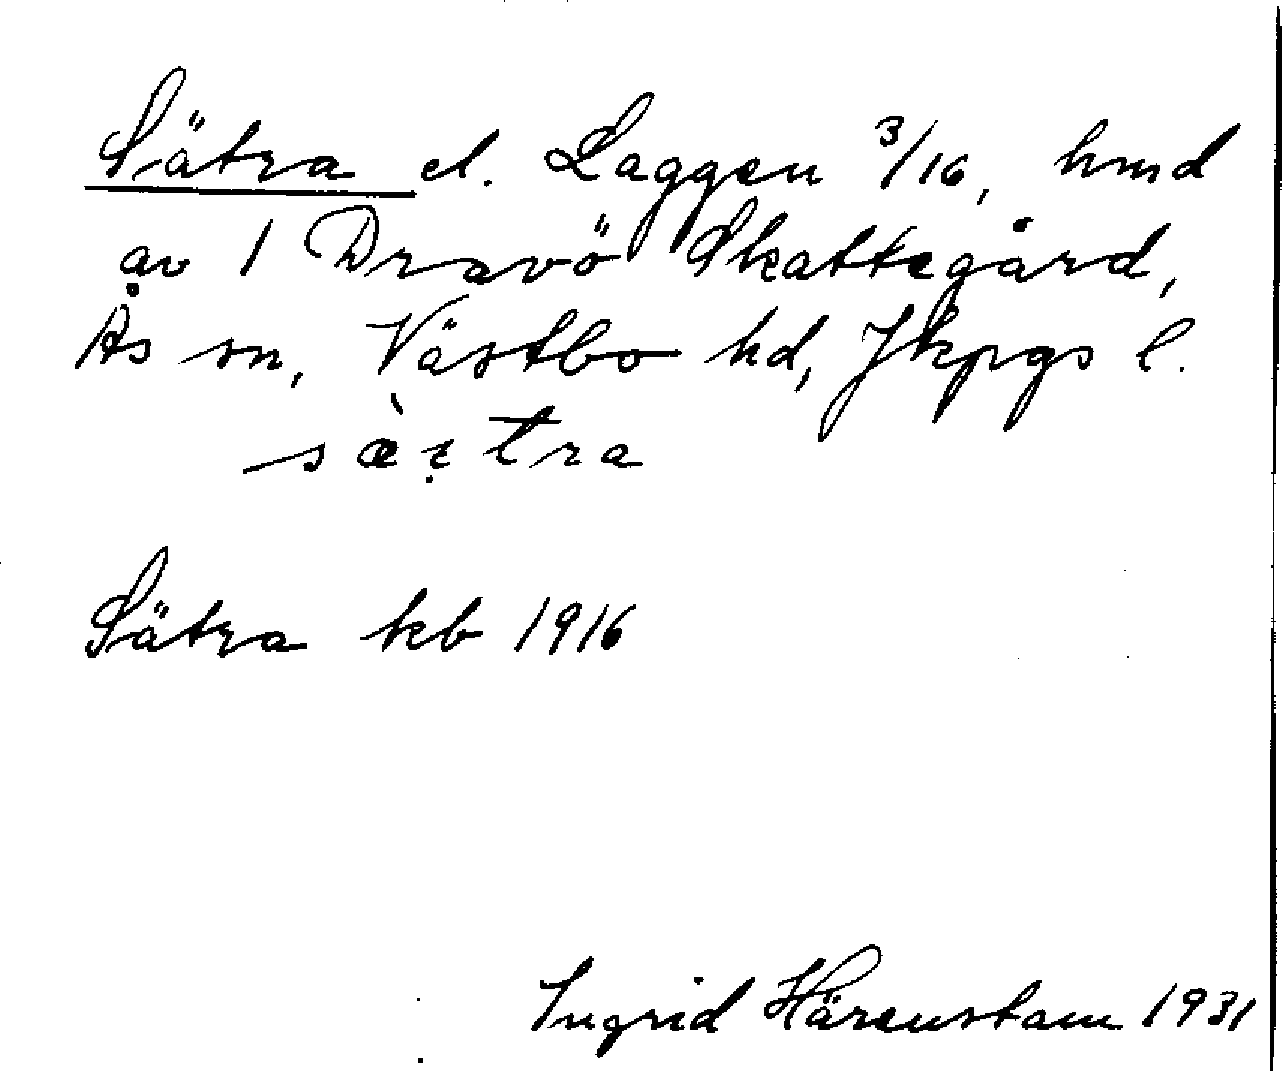 Sätra el. Laggen 3/16, hmd
av 1 Dravö Skattegård,
Ås sn, Västbo hd, Jkpgs l.
Sätra kb 1916
Ingrid Härenstam 1931